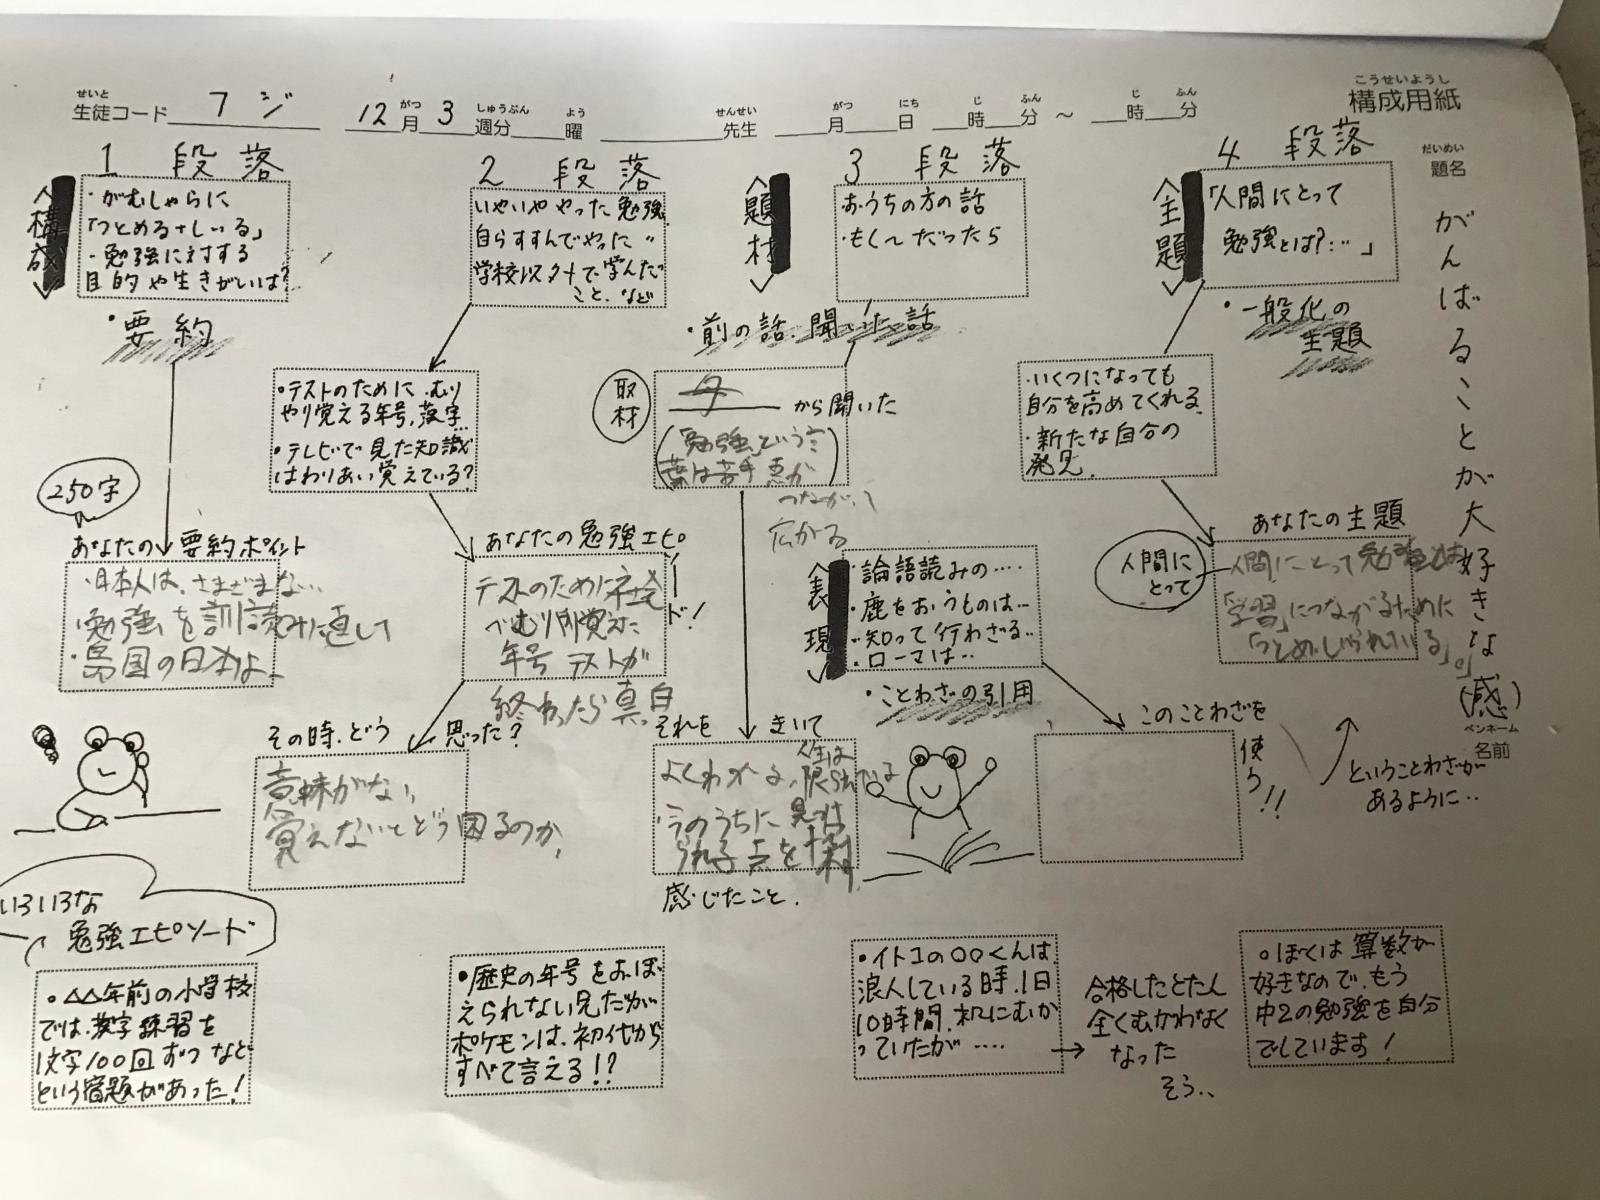 構成用紙
こうせいようし
生徒コード フジ 12月3週分 曜 先生 月 日 時 分 ～ 時 分
せいと がつ しゅうぶん よう せんせい がつ にち じ ふん じ ふん
題名
だいめい
がんばることが大好きな(感)
名前
ペンネーム
1 段落
〈構成〉
・がむしゃらに
「つとめる＋しいる」
・勉強に対する
目的や生きがいは?
・要約
250字
あなたの要約ポイント
・日本人は、さまざまない…
・勉強を訓読みに直して
・島国の日本は
2 段落
いやいややった勉強
自らすすんでやった 〃
学校以外で学んだ
こと、など
・テストのために、むり
やり覚える年号、漢字…
・テレビで見た知識
はわりあい覚えている?
あなたの勉強エピソード!
テストのために社会
でむりやり覚えた
年号 テストが
終わったら真白
その時、どう思った?
意味がない、
覚えないとどう困るのか、
〈題材〉
3 段落
・おうちの方の話
・もし〜だったら
・前の話、聞いた話
取材
母から聞いた
(「勉強」という言
葉は苦手 点が
つながって
広がる
それをきいて
よくわかる、人生は
限られている
・今のうちに
点を
感じたこと、
〈表現〉
・論語読みの‥‥
・鹿をおうものは‥
・知って行わざる‥
・ローマは‥
・ことわざの引用
このことわざを使う!!
ということわざが
あるように‥
〈主題〉
4 段落
「人間にとって
勉強とは?…」
・一般化の
主題
・いくつになっても
自分を高めてくれる。
・新たな自分の
発見。
あなたの主題
人間に
とって
人間にとって勉強とは
「学習」につながるために
「つとめ、しいられている」。
いろいろな
勉強エピソード
○△△年前の小学校
では、漢字練習を
1文字100回ずつなど
という宿題があった!
・歴史の年号をおぼ
えられない兄だが
ポケモンは、初代から
すべて言える!?
・イトコの○○くんは、
浪人している時、1日
10時間、机にむか
っていたが‥‥
→ 合格したとたん
全くむかわなく
なった
そう‥
○ぼくは算数が
好きなので、もう
中2の勉強を自分
でしています!